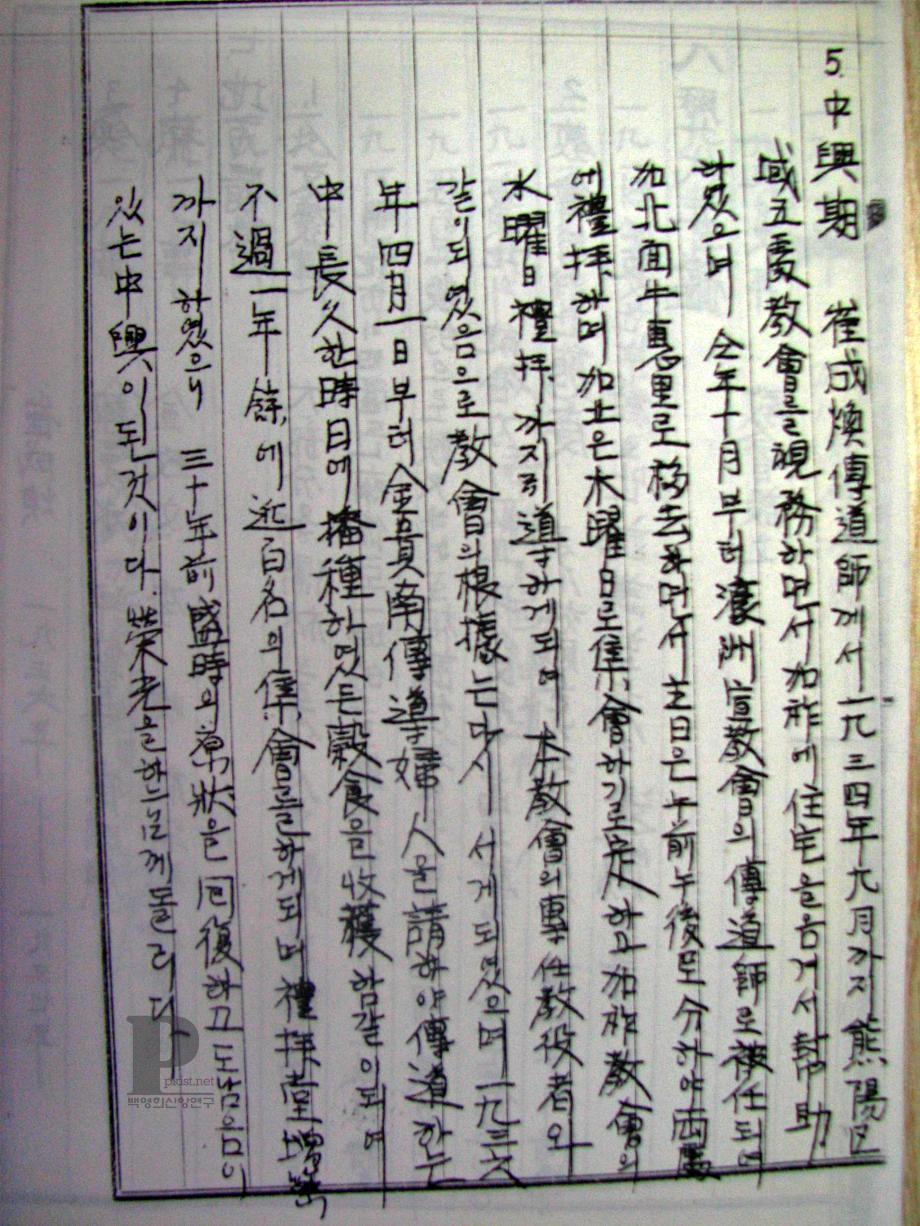 5. 中興期 崔成煥傳道師께서 一九三四年九月까지 熊陽區
域五處教會를 視務하면서 加祚에 住宅을 옴겨서 幇助
하였으며 仝年十月부터 濠洲宣教會의 傳道師로 被任되며
加北面牛惠里로 移去하면서 主日은 午前午後로 分하야 兩處
에 禮拜하며 加北은 木曜日로 集會하기로 定하고 加祚教會의
水曜日禮拜까지 引導하게되며 本教會의 專任教役者와
같이되였음으로 教會의 根據는 다시 서게 되였으며 一九三六
年四月一日부터 金貞南傳導婦人을 請하야 傳道하는
中 長久한 時日에 播種하였든 穀食을 收穫함같이되며
不過一年餘에 近百名의 集會를하게되며 禮拜堂增築
까지 하였으니 三十年前 盛時의 原狀을 回復하고도 남음이
있는 中興이 된것이다. 榮光을 하느님께 돌리다
pkist.net
백영희신앙연구